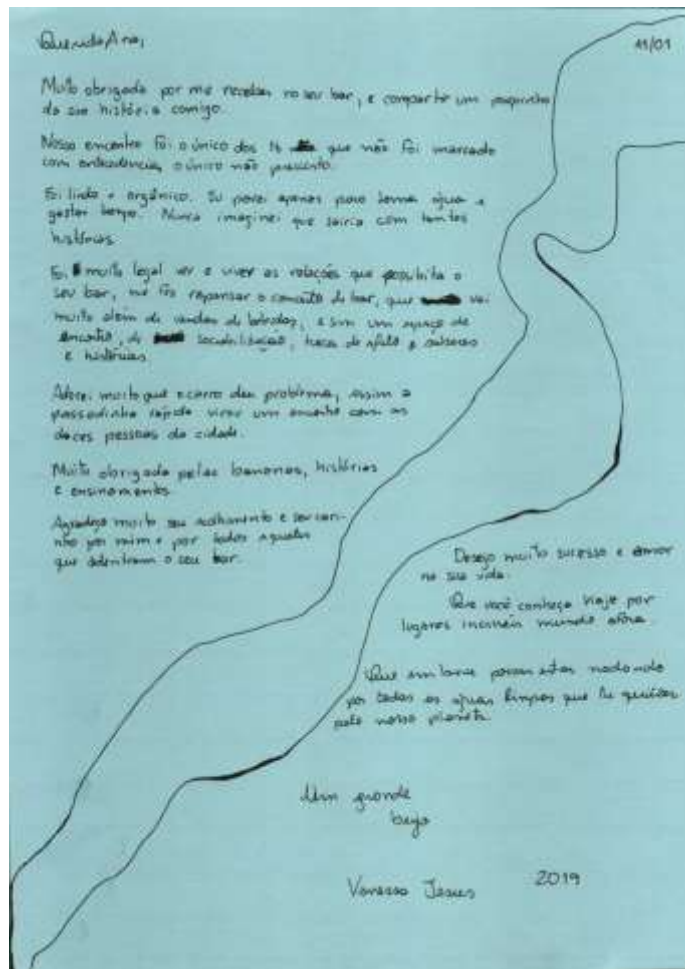 Querida Ana,
11/01
Muito obrigada por me receber no seu bar, e compartir um pouquinho
da sua história comigo.
Nosso encontro foi o único dos 16 que não foi marcado
com antecedência, o único não previsto.
Foi lindo e orgânico. Eu parei apenas para tomar água e
gastar tempo. Nunca imaginei que sairia com tantas
histórias.
Foi muito legal ver e viver as relações que possibilita o
seu bar, me fez repensar o conceito de bar, que vai
muito além de vendas de bebidas, e sim um espaço de
encontro, de sociabilização, troca de afeto e
e histórias.
Adorei muito que o carro deu problema, assim a
passadinha rápida virou um encontro com as
doces pessoas da cidade.
Muito obrigada pelas bananas, histórias
e ensinamentos.
Agradeço muito seu acolhimento e seu cari-
nho por mim e por todos aqueles
que adentram o seu bar.
Desejo muito sucesso e amor
na sua vida.
Que você conheça viaje por
lugares incríveis mundo afora.
Que em breve possam estar nadando
por todas as águas limpas que tu quiser
pelo nosso planeta.
Um grande
beijo
Vanessa Jesus
2019